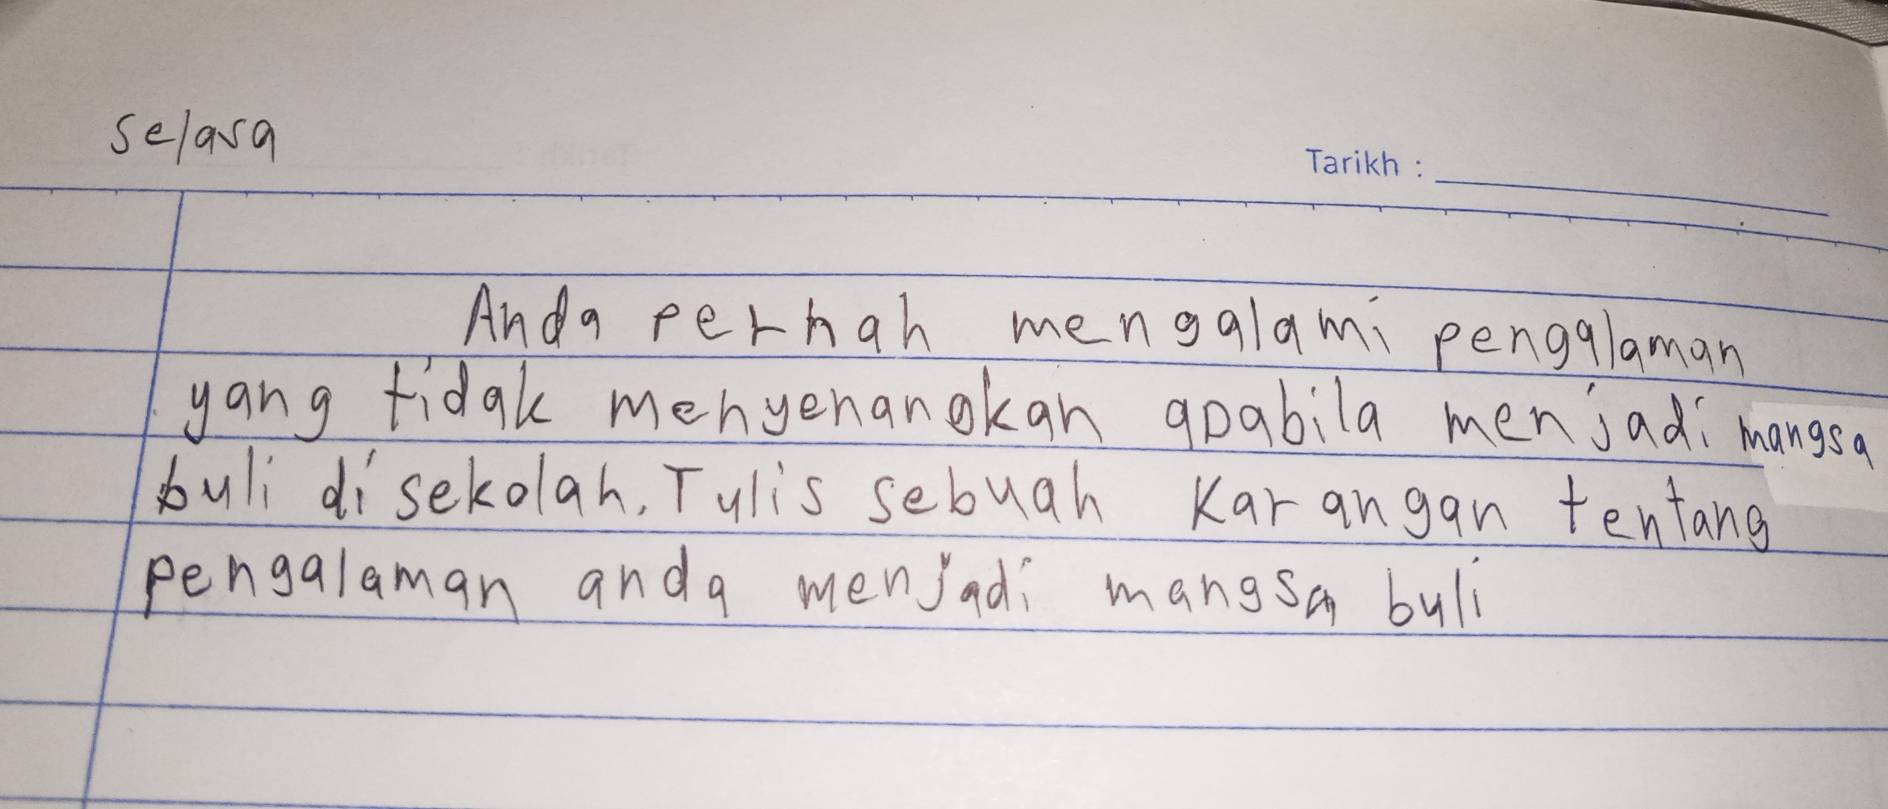 Selasa
Tarikh :
Anda pernah mengalami pengalaman
yang tidak menyenangkan apabila menjadi mangsa
buli di sekolah. Tulis sebuah Karangan tentang
pengalaman anda menjadi mangsa buli